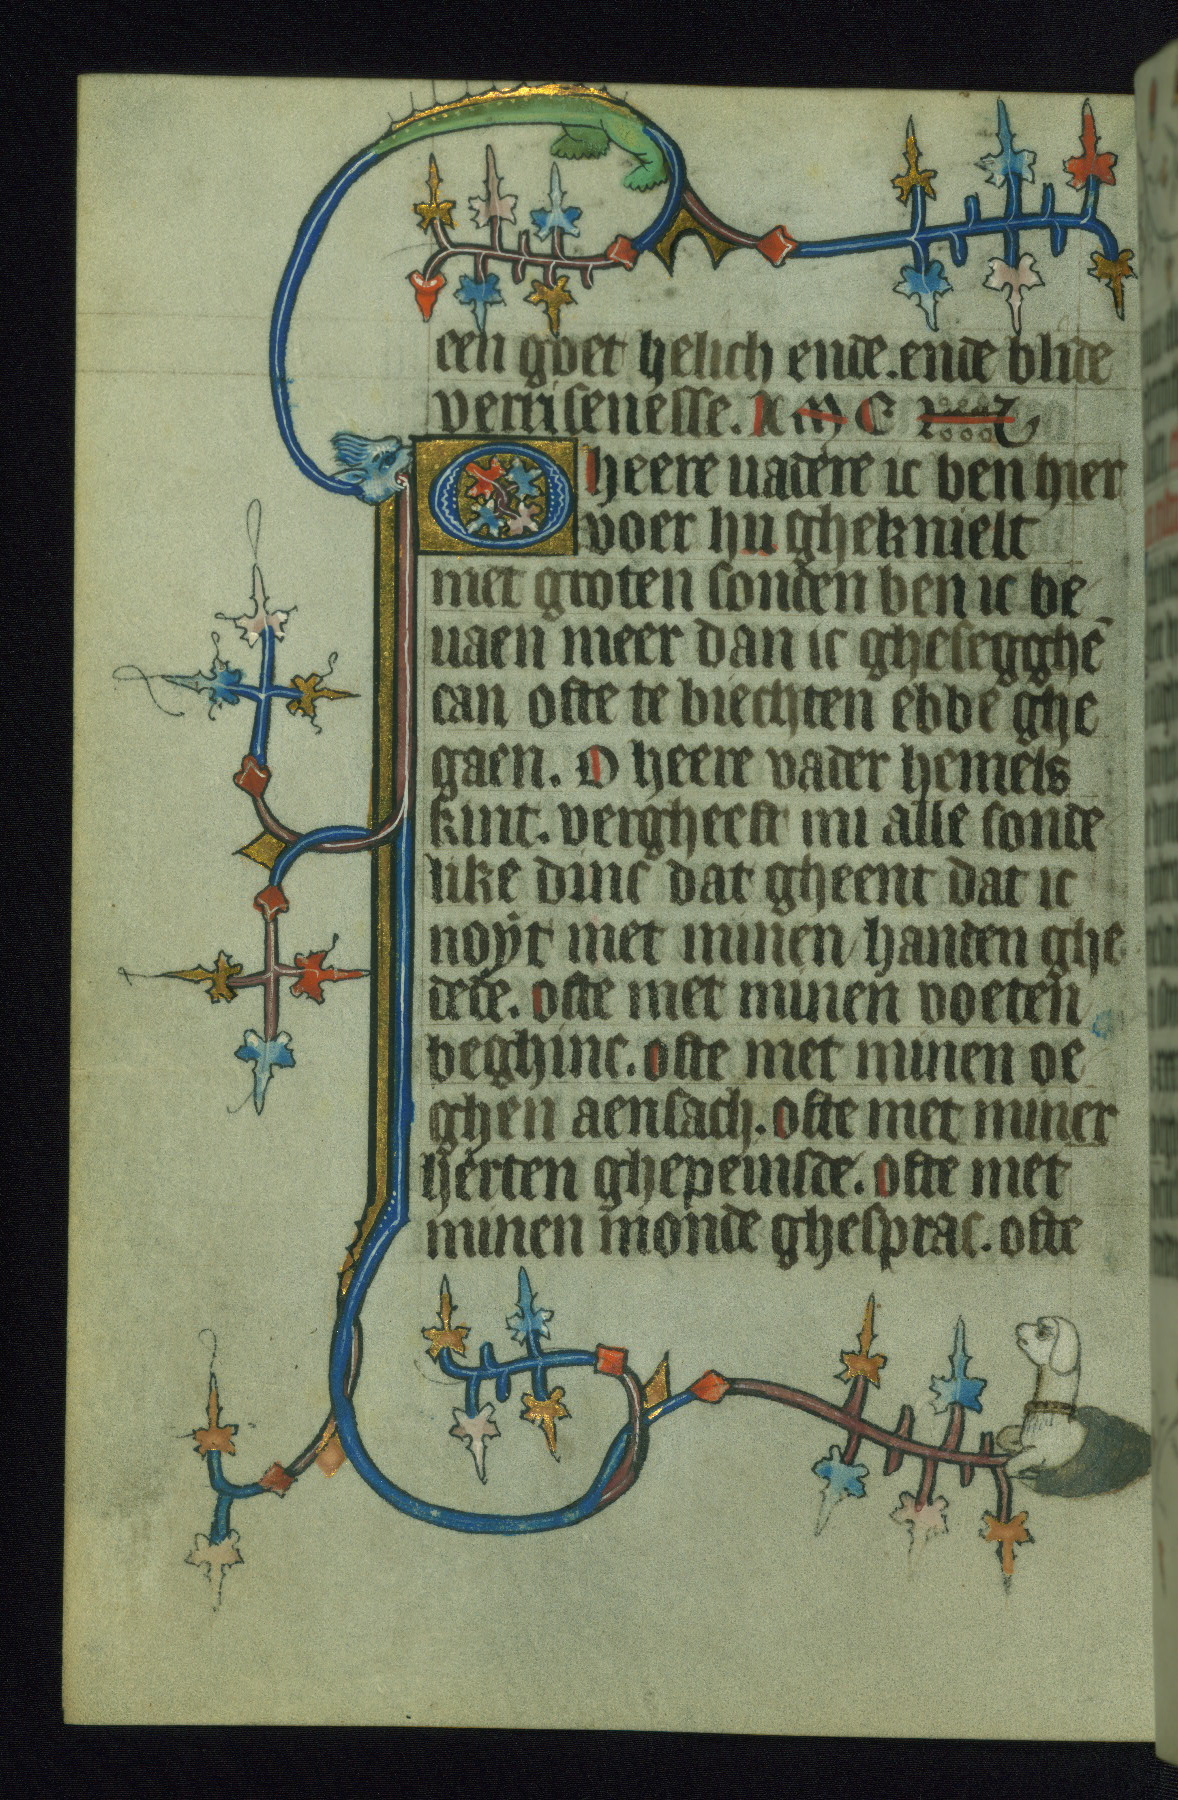 een goet helich ende.ende blide
verrisenesse. A M E
O heere uadere ic ben hier
voer hu gheknielt
met groten sonden ben ic be
uaen meer dan ic ghesegghē
can ofte te biechten ebbe ghe
gaen. O heere vader hemels
kint. vergheeft mi alle sonde
like dinc dat gheent dat ic
noyt met minen handen ghe
dede. ofte met minen voeten
beghinc. ofte met minen oe
ghen aensach. ofte met miner
herten ghepeinsde. ofte met
minen monde ghesprac. ofte